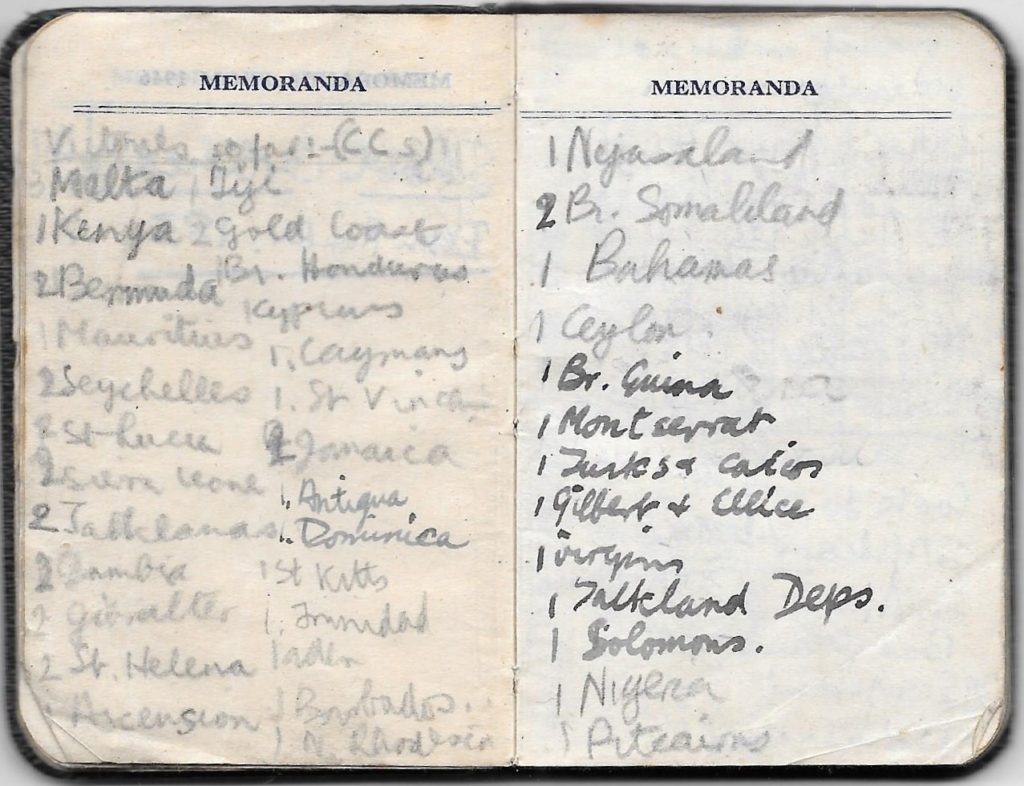 MEMORANDA
Victories so far:- (CCs)
3 Malta
1 Kenya
2 Bermuda
1 Mauritius
2 Seychelles
2 St Lucia
2 Sierra Leone
2 Falklands
2 Gambia
2 Gibralter
2 St. Helena
1 Ascension
1 Fiji
2 Gold Coast
1 Br. Honduras
1 Cyprus
1. Caymans
1. St Vincent
2 Jamaica
1. Antigua
1. Dominica
1 St Kitts
1. Trinidad
1 aden
1 Barbados.
1 N. Rhodesia
MEMORANDA
1 Nyasaland
2 Br. Somaliland
1 Bahamas
1 Ceylon.
1 Br. Guina
1 Montserrat
1 Turks & Caicos
1 Gilbert & Ellice
1 Virgins
1 Falkland Deps.
1 Solomons.
1 Nigeria
1 Pitcairns